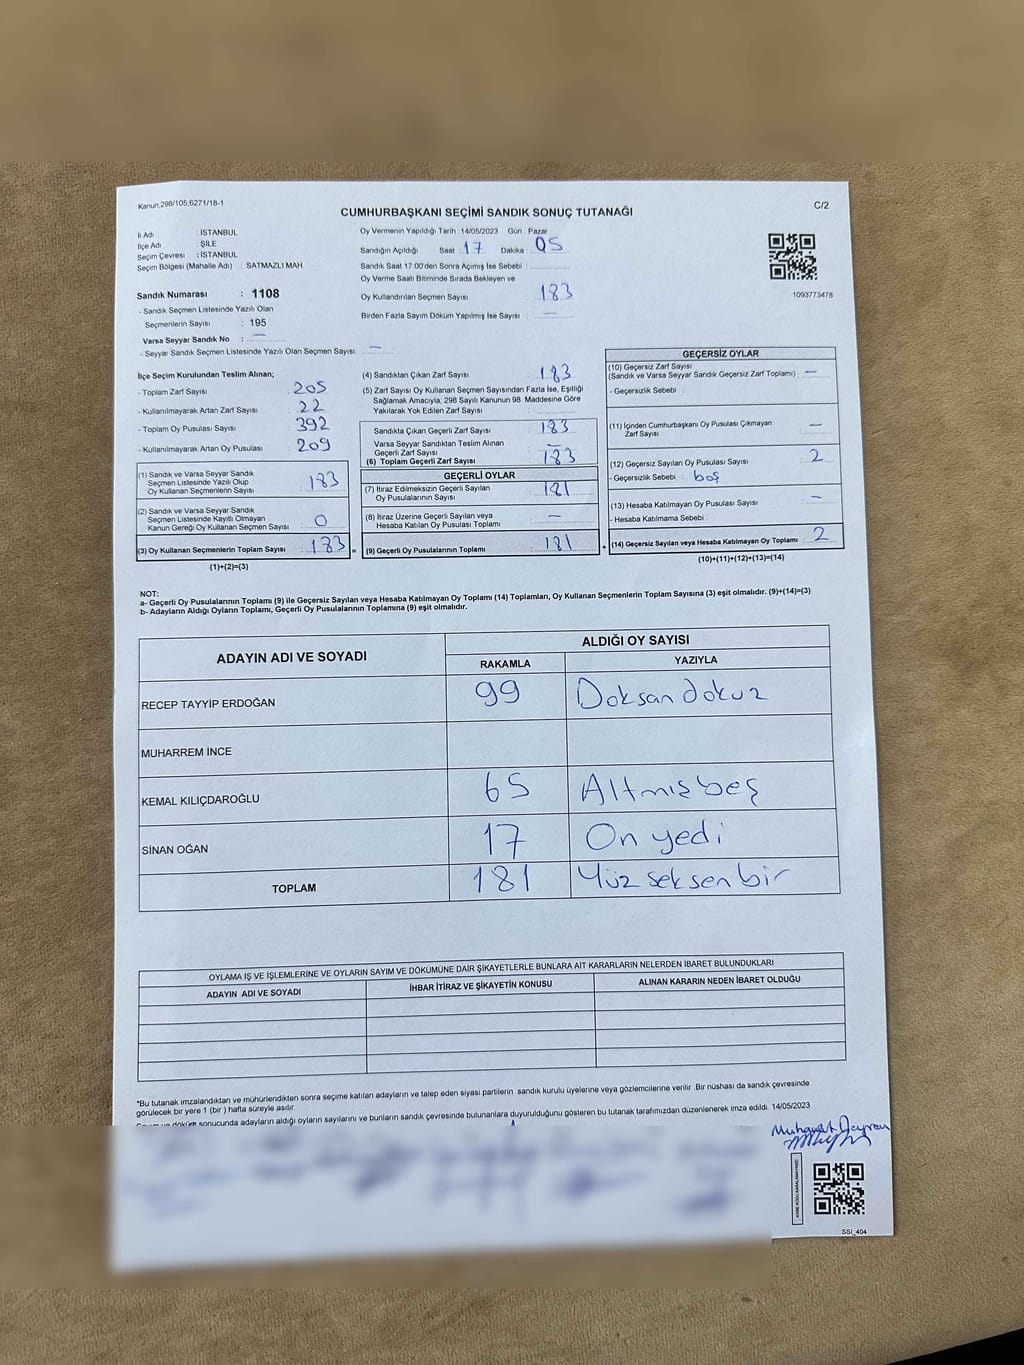 Kanun.298/105,6271/18-1
C/2
CUMHURBAŞKANI SEÇİMİ SANDIK SONUÇ TUTANAĞI
İl Adı : İSTANBUL
İlçe Adı : ŞİLE
Seçim Çevresi : İSTANBUL
Seçim Bölgesi (Mahalle Adı) : SATMAZLI MAH
Sandık Numarası : 1108
- Sandık Seçmen Listesinde Yazılı Olan
Seçmenlerin Sayısı : 195
Varsa Seyyar Sandık No : —
- Seyyar Sandık Seçmen Listesinde Yazılı Olan Seçmen Sayısı: —
Oy Vermenin Yapıldığı Tarih :14/05/2023 Gün : Pazar
Sandığın Açıldığı Saat : 17 Dakika : 05
Sandık Saat 17:00'den Sonra Açımış İse Sebebi :
Oy Verme Saati Bitiminde Sırada Bekleyen ve
Oy Kullandırılan Seçmen Sayısı : 183
Birden Fazla Sayım Döküm Yapılmış İse Sayısı : —
1093773478
İlçe Seçim Kurulundan Teslim Alınan;
- Toplam Zarf Sayısı : 205
- Kullanılmayarak Artan Zarf Sayısı : 22
- Toplam Oy Pusulası Sayısı : 392
- Kullanılmayarak Artan Oy Pusulası : 209
(1) Sandık ve Varsa Seyyar Sandık
Seçmen Listesinde Yazılı Olup
Oy Kullanan Seçmenlerin Sayısı : 183
(2) Sandık ve Varsa Seyyar Sandık
Seçmen Listesinde Kayıtlı Olmayan
Kanun Gereği Oy Kullanan Seçmen Sayısı : 0
(3) Oy Kullanan Seçmenlerin Toplam Sayısı : 183 =
(1)+(2)=(3)
(4) Sandıktan Çıkan Zarf Sayısı : 183
(5) Zarf Sayısı Oy Kullanan Seçmen Sayısından Fazla İse, Eşitliği
Sağlamak Amacıyla, 298 Sayılı Kanunun 98. Maddesine Göre
Yakılarak Yok Edilen Zarf Sayısı :
Sandıkta Çıkan Geçerli Zarf Sayısı : 183
Varsa Seyyar Sandıktan Teslim Alınan
Geçerli Zarf Sayısı : —
(6) Toplam Geçerli Zarf Sayısı : 183
GEÇERLİ OYLAR
(7) İtiraz Edilmeksizin Geçerli Sayılan
Oy Pusulalarının Sayısı : 181
(8) İtiraz Üzerine Geçerli Sayılan veya
Hesaba Katılan Oy Pusulası Toplamı : —
(9) Geçerli Oy Pusulalarının Toplamı : 181 +
GEÇERSİZ OYLAR
(10) Geçersiz Zarf Sayısı
(Sandık ve Varsa Seyyar Sandık Geçersiz Zarf Toplamı) : —
- Geçersizlik Sebebi :
(11) İçinden Cumhurbaşkanı Oy Pusulası Çıkmayan
Zarf Sayısı : —
(12) Geçersiz Sayılan Oy Pusulası Sayısı : 2
- Geçersizlik Sebebi : boş
(13) Hesaba Katılmayan Oy Pusulası Sayısı : —
- Hesaba Katılmama Sebebi :
(14) Geçersiz Sayılan veya Hesaba Katılmayan Oy Toplamı : 2
(10)+(11)+(12)+(13)=(14)
NOT:
a- Geçerli Oy Pusulalarının Toplamı (9) ile Geçersiz Sayılan veya Hesaba Katılmayan Oy Toplamı (14) Toplamları, Oy Kullanan Seçmenlerin Toplam Sayısına (3) eşit olmalıdır. (9)+(14)=(3)
b- Adayların Aldığı Oyların Toplamı, Geçerli Oy Pusulalarının Toplamına (9) eşit olmalıdır.
ADAYIN ADI VE SOYADI
ALDIĞI OY SAYISI
RAKAMLA YAZIYLA
RECEP TAYYİP ERDOĞAN 99 Doksan dokuz
MUHARREM İNCE
KEMAL KILIÇDAROĞLU 65 Altmışbeş
SİNAN OĞAN 17 On yedi
TOPLAM 181 Yüz seksen bir
OYLAMA İŞ VE İŞLEMLERİNE VE OYLARIN SAYIM VE DÖKÜMÜNE DAİR ŞİKAYETLERLE BUNLARA AİT KARARLARIN NELERDEN İBARET BULUNDUKLARI
ADAYIN ADI VE SOYADI İHBAR İTİRAZ VE ŞİKAYETİN KONUSU ALINAN KARARIN NEDEN İBARET OLDUĞU
*Bu tutanak imzalandıktan ve mühürlendikten sonra seçime katılan adayların ve talep eden siyasi partilerin sandık kurulu üyelerine veya gözlemcilerine verilir .Bir nüshası da sandık çevresinde
görülecek bir yere 1 (bir ) hafta süreyle asılır.
döküm sonucunda adayların aldığı oyların sayılarını ve bunların sandık çevresinde bulunanlara duyurulduğunu gösteren bu tutanak tarafımızdan düzenlenerek imza edildi. 14/05/2023
SSI_404